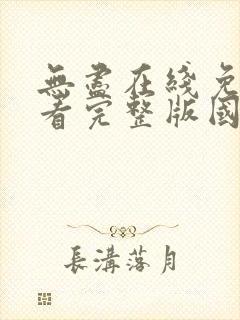 無盡在綫免
看完整版國
長溝落月